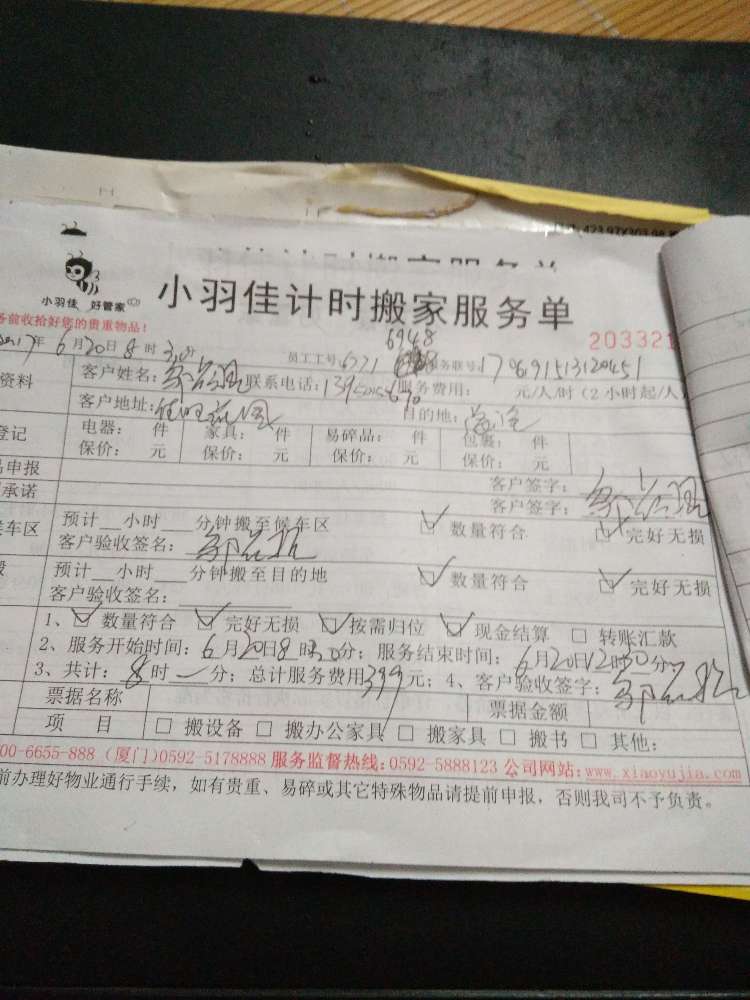 423.97X303.98
小羽佳 好管家
小羽佳计时搬家服务单
务前收拾好您的贵重物品！
203321
6948
2017年6月20日8时30分 员工工号:6721 服务联号:
资料 客户姓名: 联系电话: 服务费用: 元/人/时(2小时起/人)
客户地址: 目的地:
登记 电器: 件 家具: 件 易碎品: 件 包裹: 件
保价: 元 保价: 元 保价: 元 保价: 元
申报 客户签字:
承诺 客户签字:
车区 预计__小时___分钟搬至候车区 ☑ 数量符合 ☑ 完好无损
客户验收签名:
预计__小时___分钟搬至目的地 ☑ 数量符合 ☑ 完好无损
客户验收签名:
1、☑ 数量符合 ☑ 完好无损 ☑ 按需归位 ☑ 现金结算 □ 转账汇款
2、服务开始时间: 6月20日8时30分; 服务结束时间: 6月20日12时30分
3、共计: 8时一分; 总计服务费用399元; 4、客户验收签字:
票据名称 票据金额
项 目 □ 搬设备 □ 搬办公家具 □ 搬家具 □ 搬书 □ 其他:
00-6655-888 (厦门)0592-5178888 服务监督热线:0592-5888123 公司网站:www.xiaoyujia.com
前办理好物业通行手续，如有贵重、易碎或其它特殊物品请提前申报，否则我司不予负责。